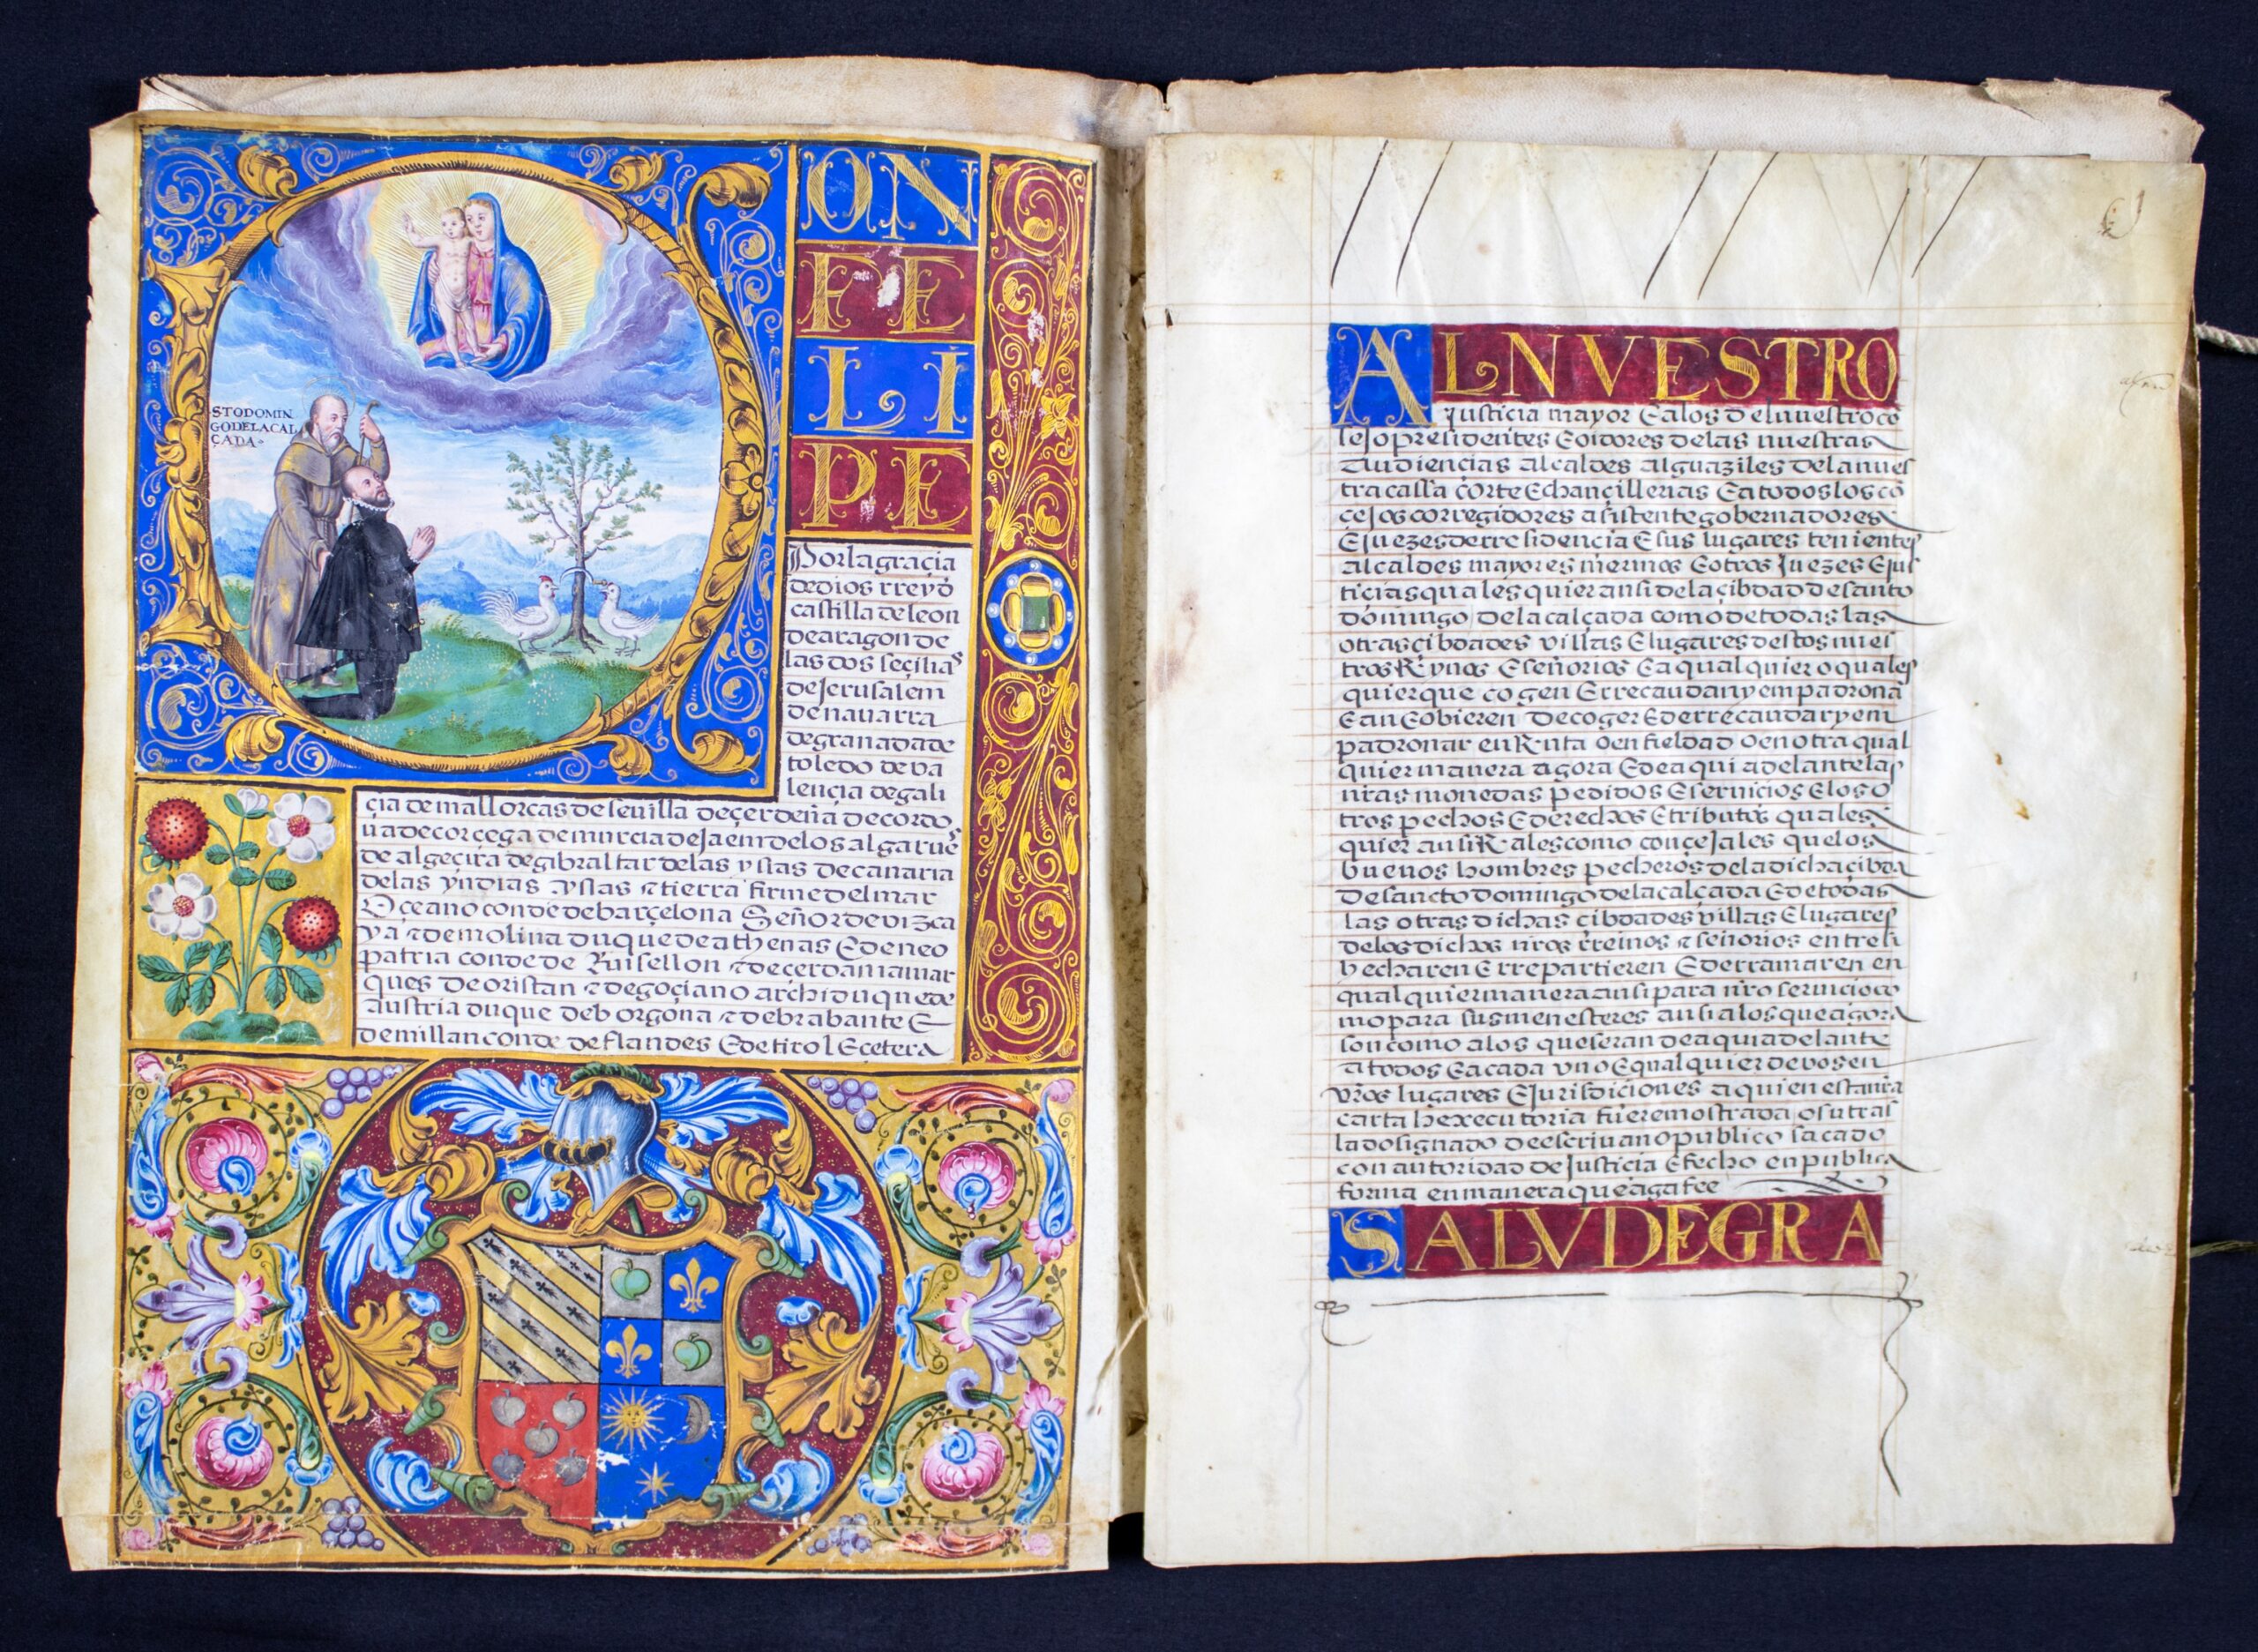 STO DOMIN
GO DE LA CAL
ÇADA
ON
FE
LI
PE
Por la graçia
de dios rrey d
castilla de leon
de aragon de
las dos seçilias
de Jerusalem
de nauarra
de granada de
toledo de va
lençia de gali
çia de mallorcas de seuilla de çerdeña de cordo
ua de corcega de murcia de Jaem de los algarues
de algeçira de gibraltar de las yslas de canaria
de las yndias yslas & tierra firme del mar
Oçeano conde de barçelona Señor de vizca
ya & de molina duque de athenas E de neo
patria conde de Ruisellon & de çerdania mar
ques de oristan & de goçiano archiduque de
Austria duque de borgona & de brabante E
de millan conde de flandes E de tirol Eçetera
AL NVESTRO
Justicia mayor E a los del nuestro cõ
sejo presidentes E oidores de las nuestras
Audiencias alcaldes alguaziles de la nues
tra cassa corte E chançillerias E a todos los cõ
çejos corregidores asistente gobernadores
E juezes de rresidencia E sus lugares tenientes
alcaldes mayores merinos E otros Juezes E jus
ticias quales quier ansi de la çibdad de santo
domingo de la calçada como de todas las
otras çibdades villas E lugares destos nues
tros Rynos E señorios E a qual quier o quales
quier que cogen E rrecaudan y empadrona
E an E obieren de coger E de rrecaudar y em
padronar en Rnta o en fieldad o en otra qual
quier manera agora E de aqui adelante las
nras monedas pedidos E seruicios E los o
tros pechos E derechos E tributos quales
quier ansi Rales como conçejales que los
buenos hombres pecheros de la dicha çibda
de sancto domingo de la calçada E de todas
las otras dichas cibdades villas E lugares
de los dichos nros rreinos & señorios entre si
hecharen E rrepartieren E derramaren en
qual quier manera ansi para nro seruicio co
mo para sus menesteres ansi a los que agora
son como a los que seran de aqui adelante
a todos E a cada vno E qual quier de vos en
vros lugares E Jurisdiciones a quien esta nra
carta hexecutoria fuere mostrada o su tras
lado signado de escriuano publico sacado
con autoridad de Justicia E fecho en publica
forma en manera que aga fee
SALVD E GRA